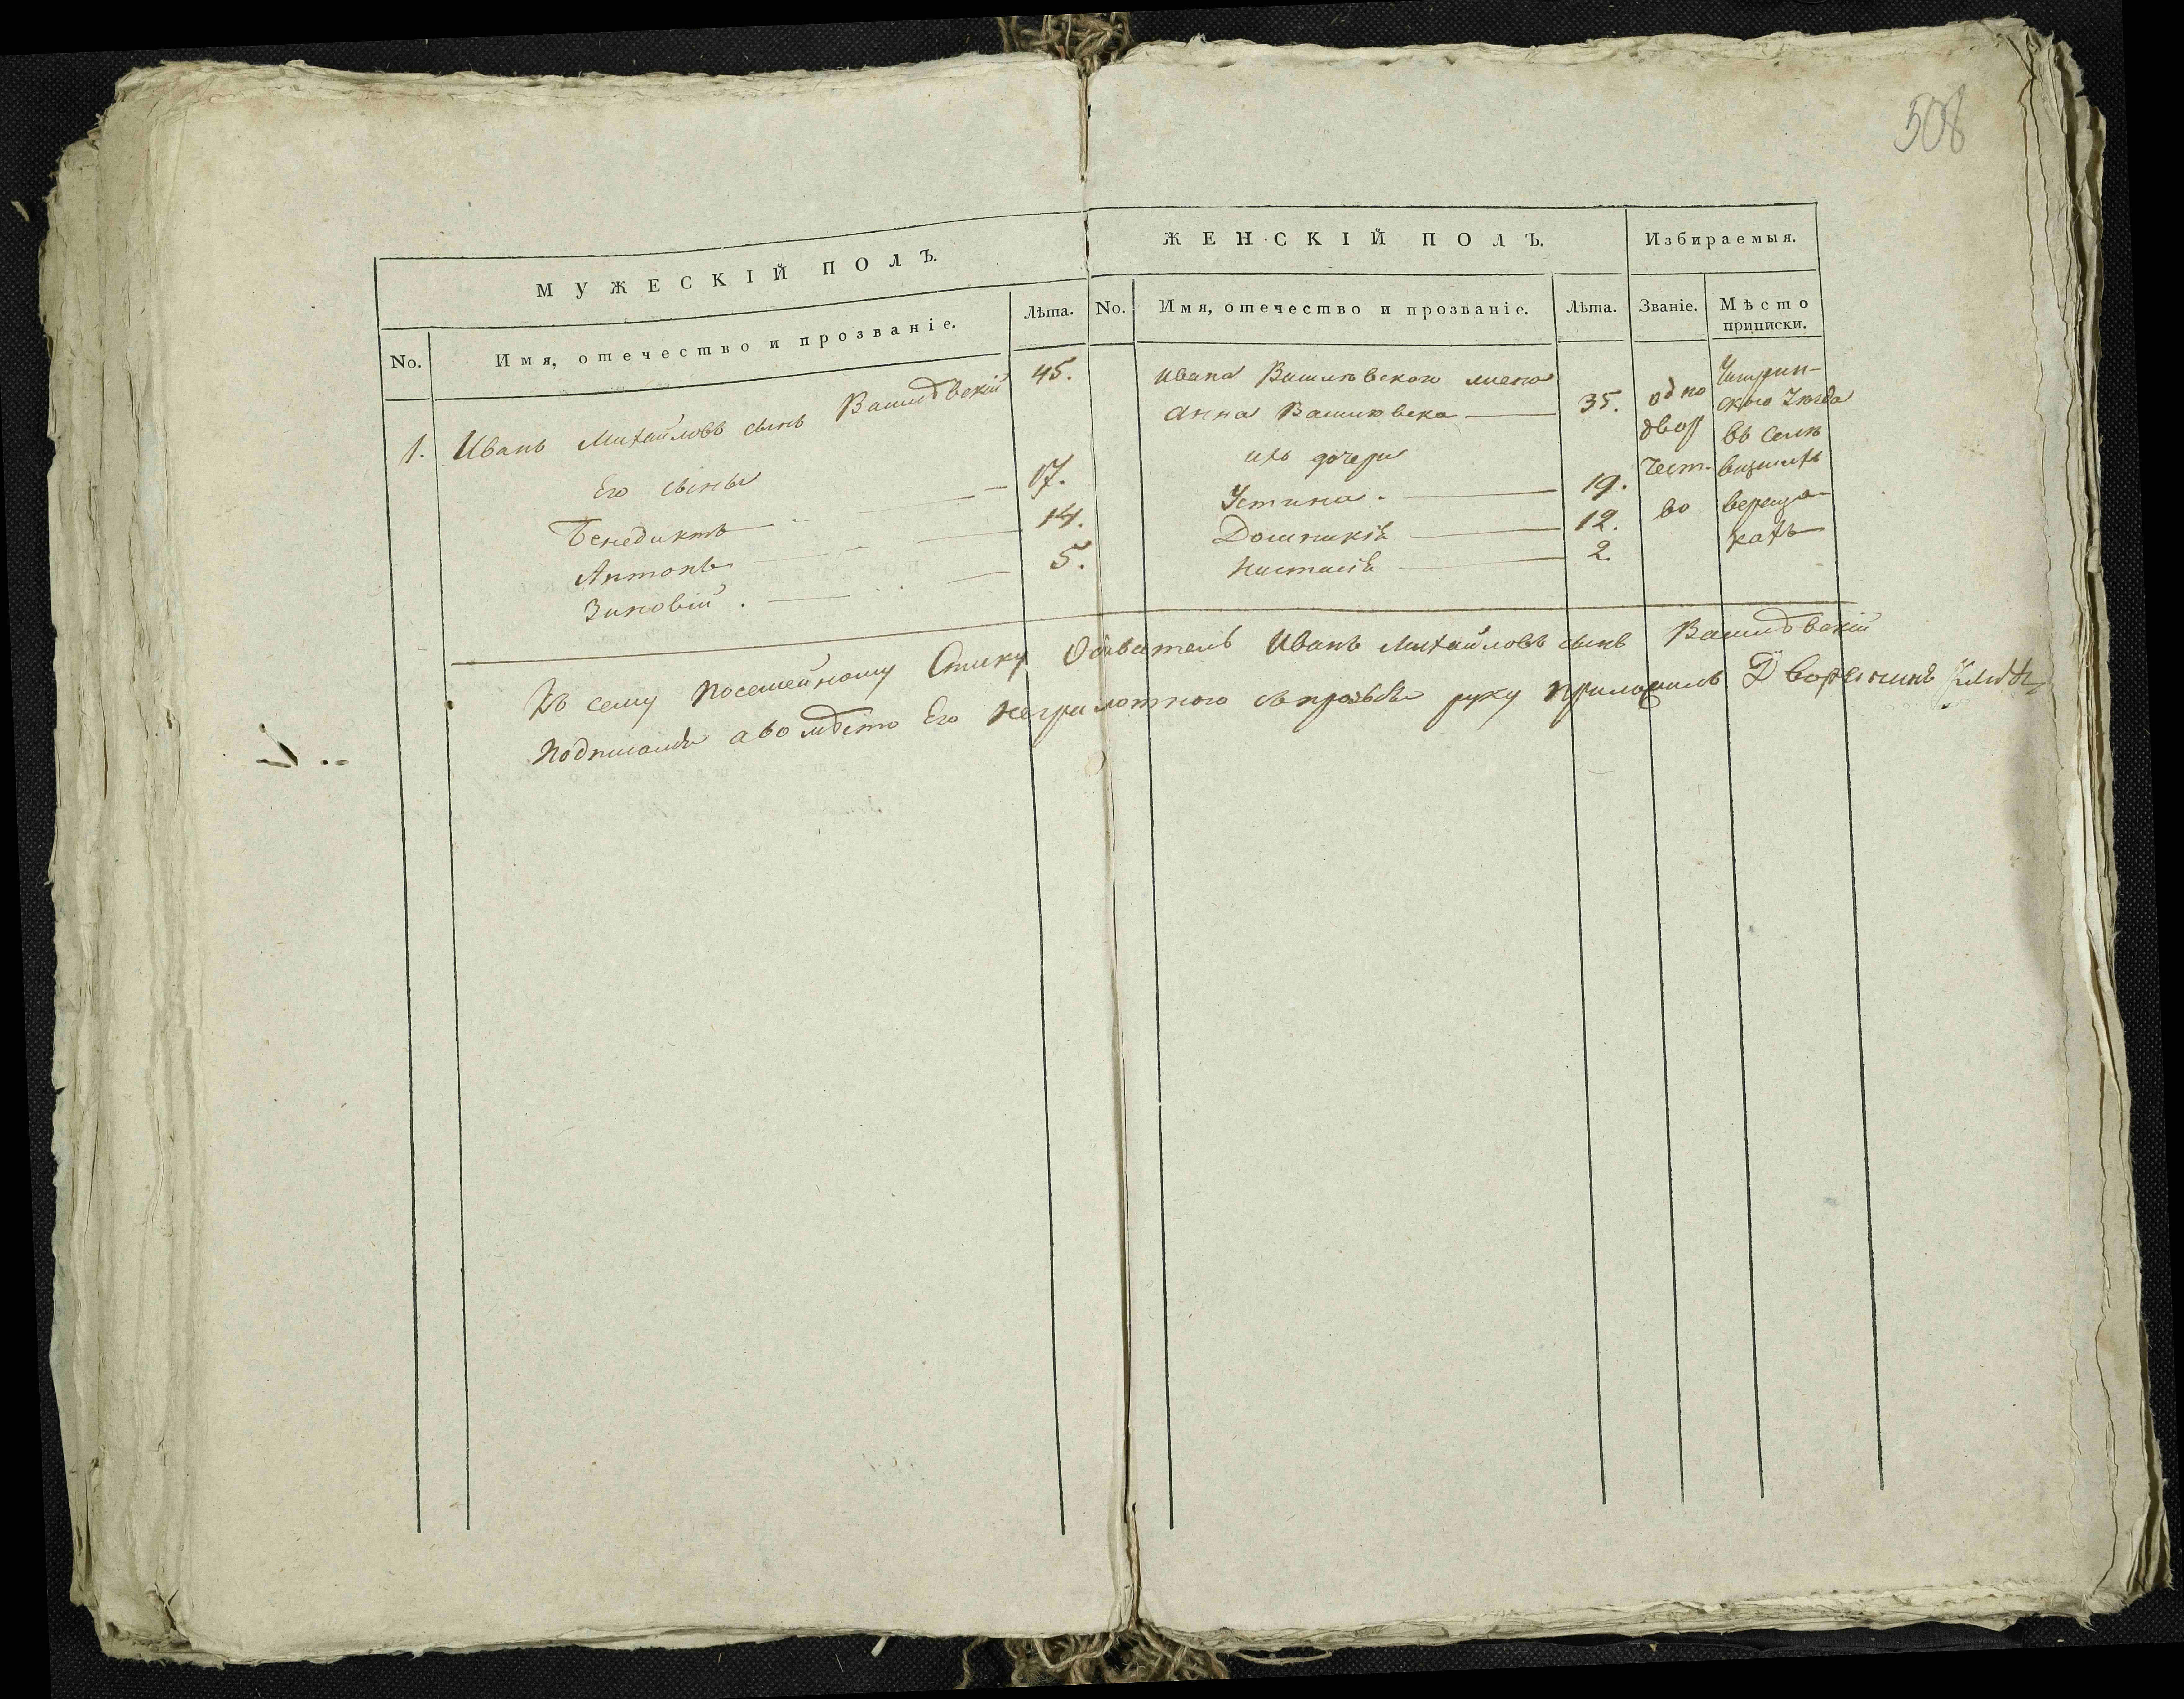 508
МУЖЕСКІЙ ПОЛЪ.
No.
Имя, отечество и прозваніе.
Лѣта.
1. Иванъ Михайловъ сынъ 45.
Его сыны
Бенедиктъ 17.
Антонъ 14.
Зиновій. 5.
ЖЕНСКІЙ ПОЛЪ.
No.
Имя, отечество и прозваніе.
Лѣта.
Ивана жена
Анна 35.
ихъ дочери
Устина. 19.
Домникія 12.
Настасія 2.
Избираемыя.
Званіе.
Мѣсто
приписки.
одно
двор
чест-
во
Чигрин-
ского уезда
въ селѣ
Вереща-
кахъ
Къ сему посемейному Списку Обыватель Иванъ Михайловъ сынъ
а вомѣсто Его неграмотного руку приложилъ Дворянинъ